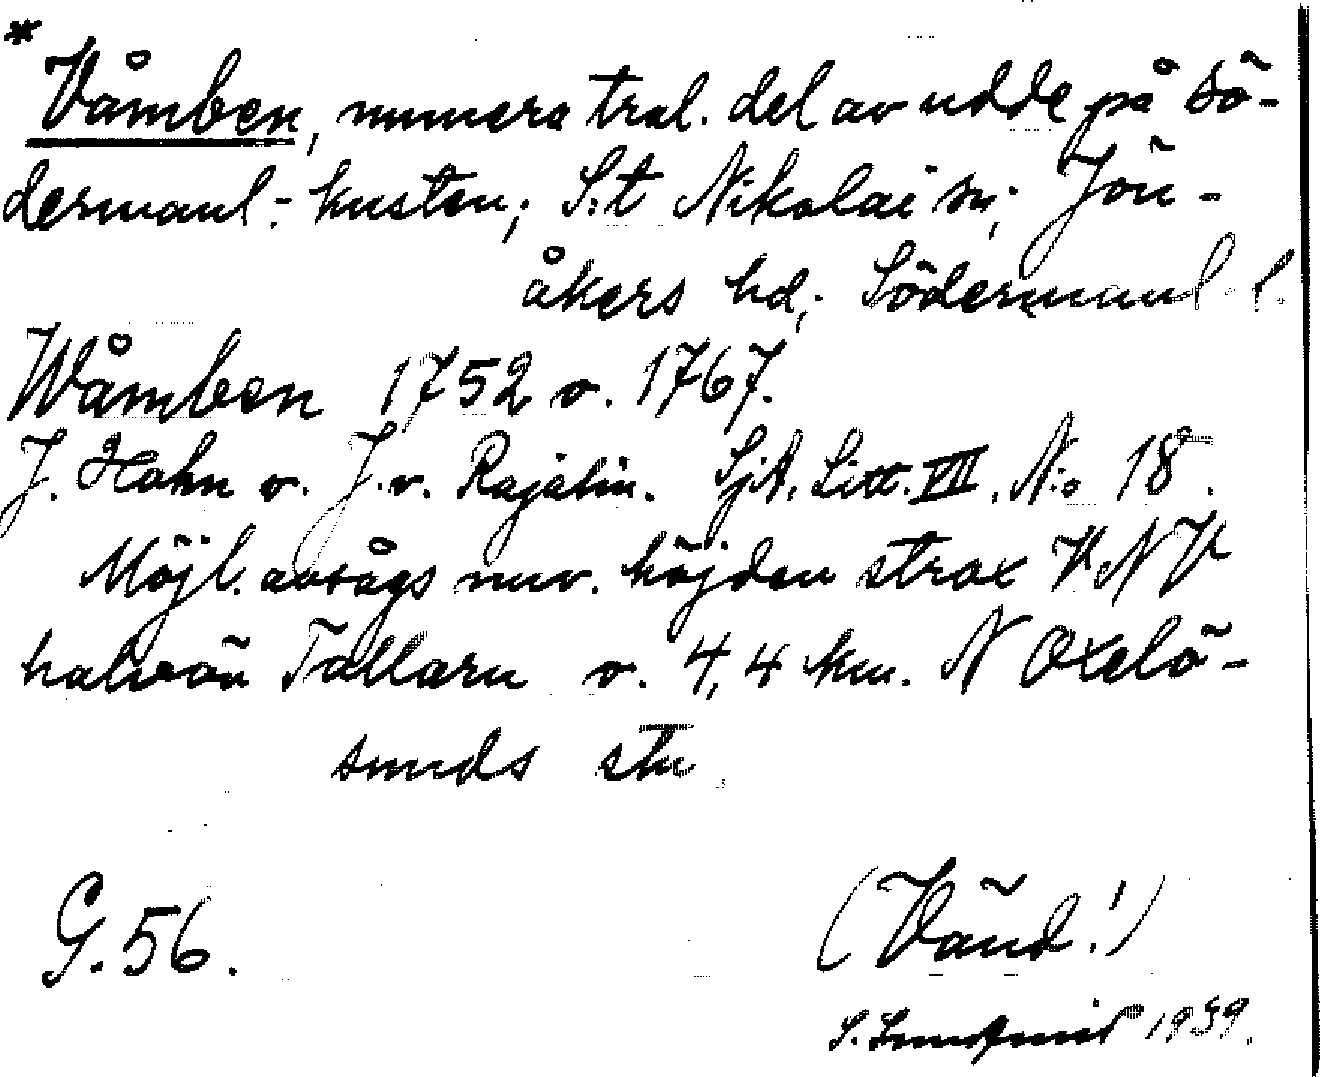 * Våmben, numera tral. del av udde på Sö-
dermanl.-kusten; S:t Nikolai sn; Jön-
åkers hd; Södermanl. l.
Wåmben 1752 o. 1767.
J. Hahn o. J. v. Rajalin. SjA. Litt. VII. N:o 18.
Möjl. avsågs nuv. höjden strax VNV
halvön Tallarn o. 4,4 km. N Oxelö-
sunds stn
G. 56.
(Vänd!)
S. Lundqvist 1939.